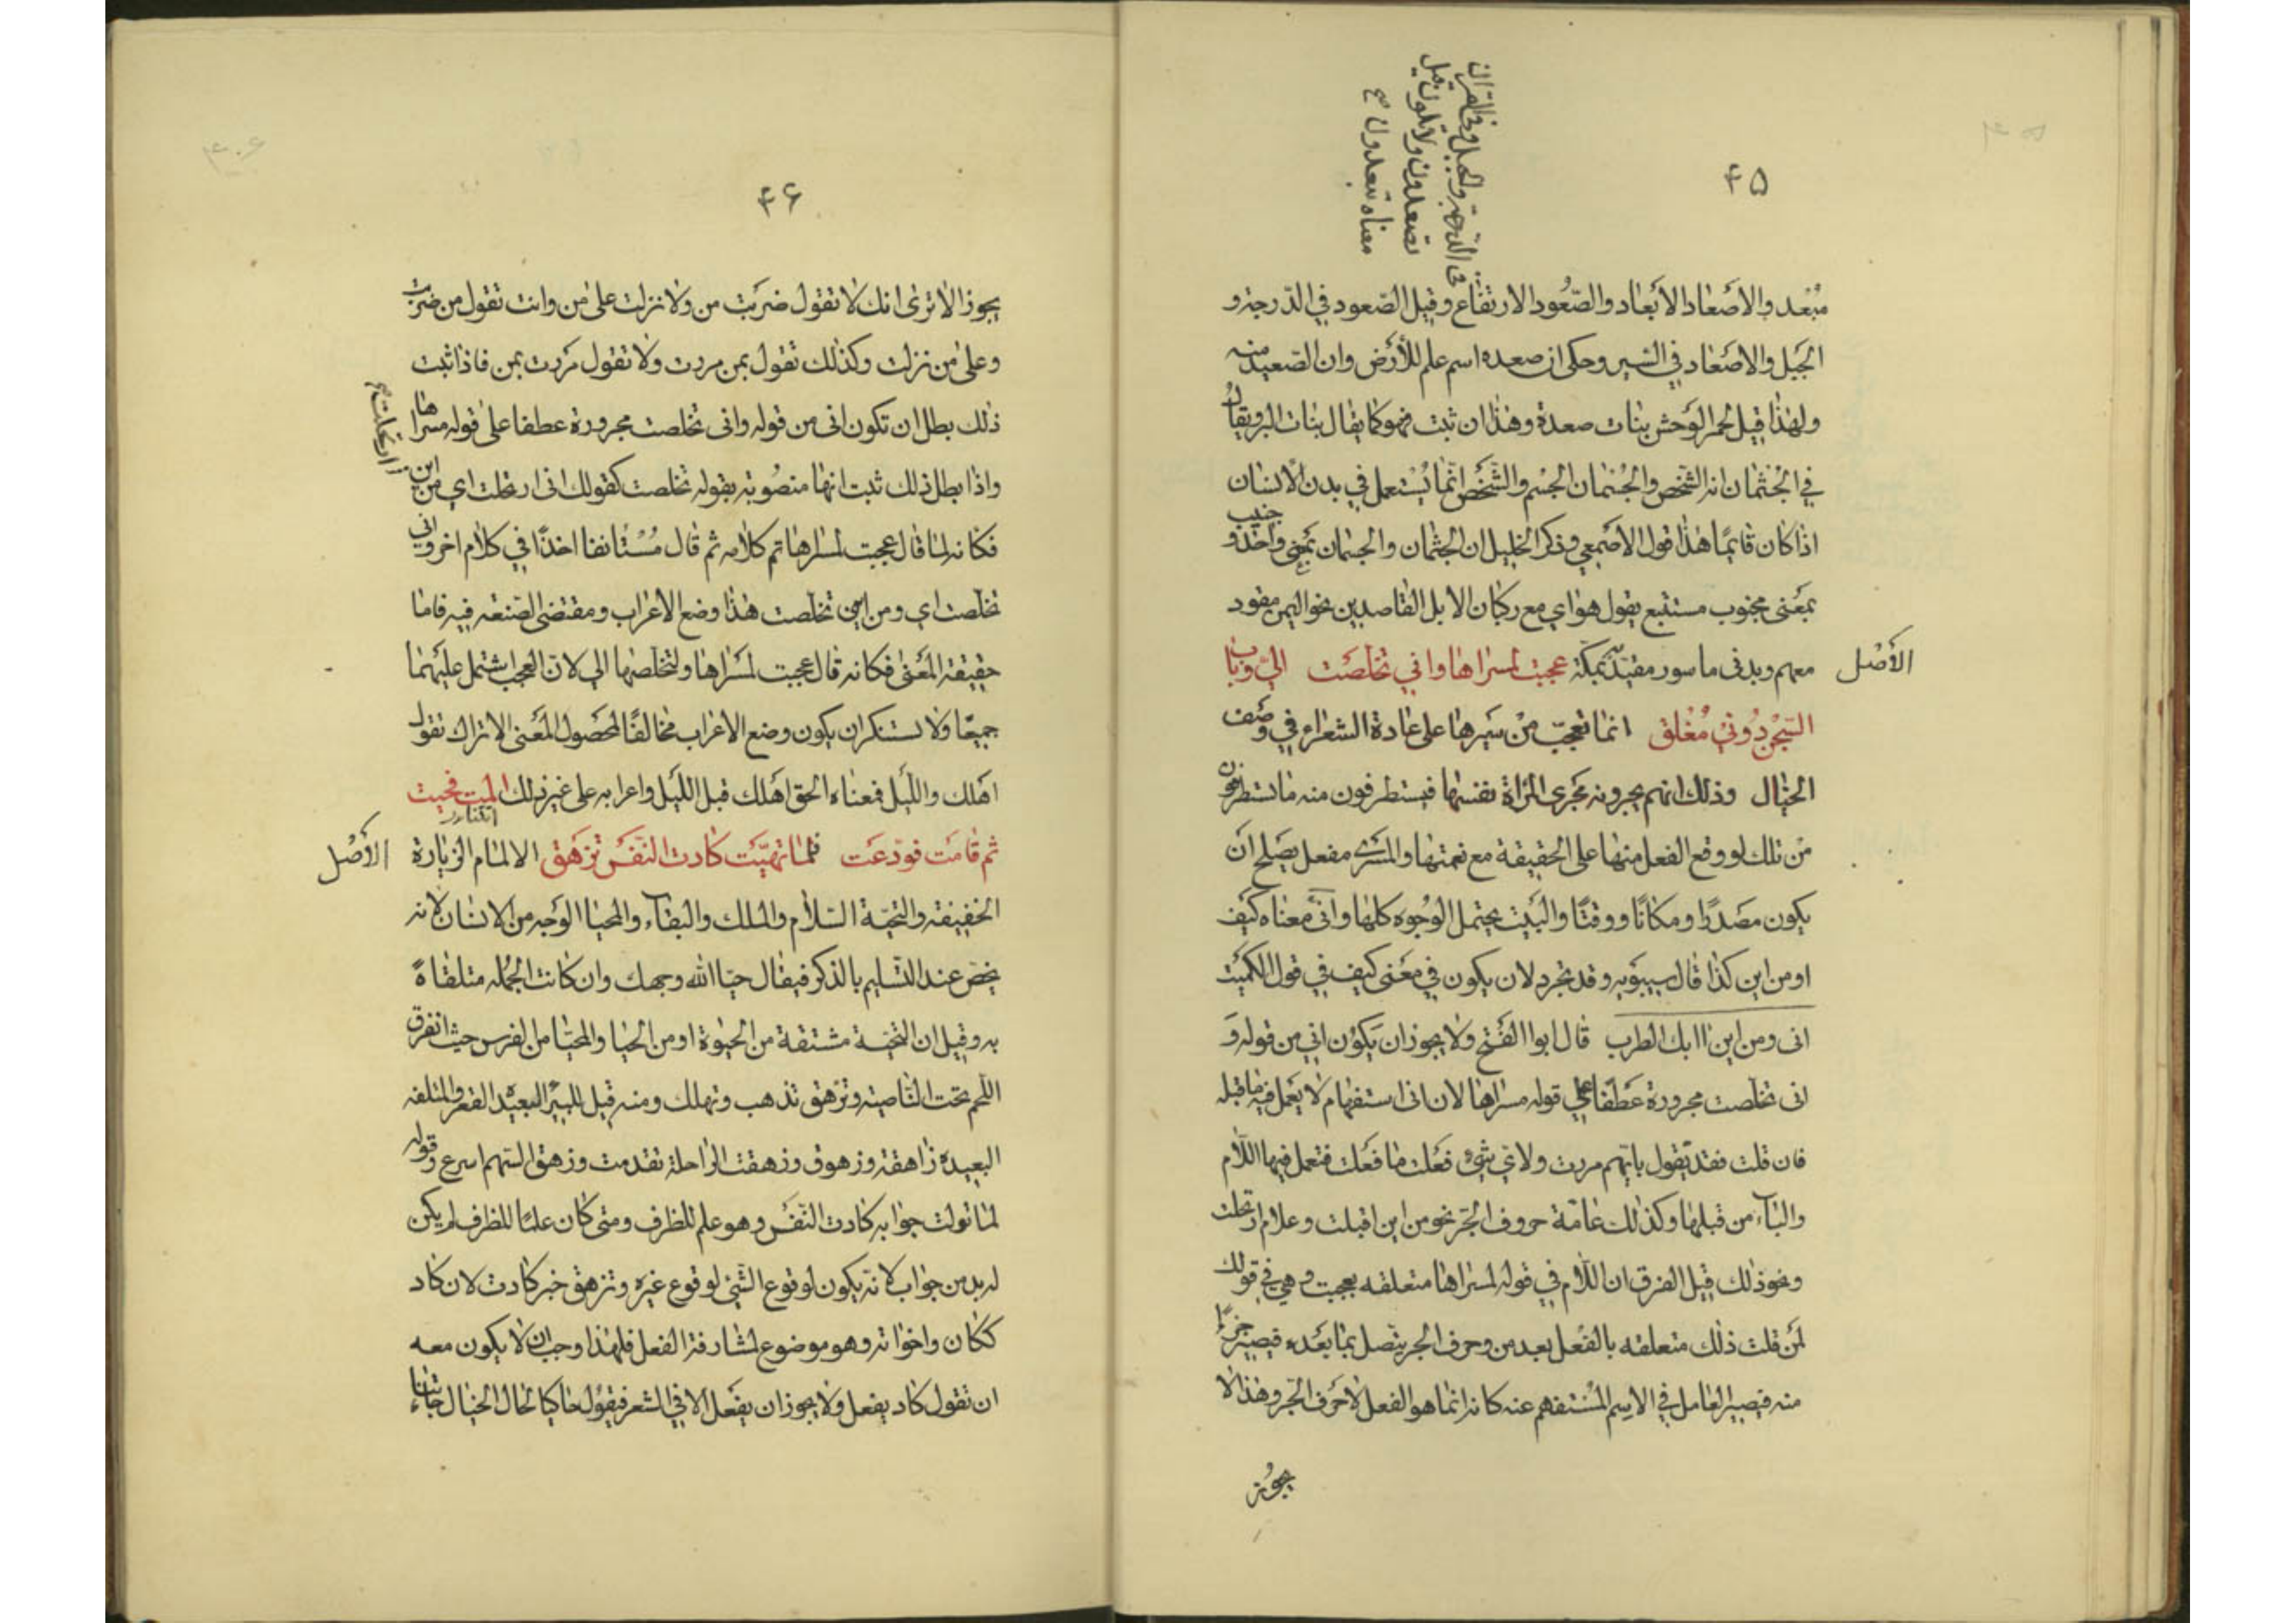 ۴۵
في الدرجة والجبل وفي القران
تصعدون ولا تلون قيل
معناه تبعدون صح
مُبْعد والاصْعاد الأبْعاد والصّعُود الارتفاع وقيل الصّعود في الدّرجة و
الجَبل والاصْعاد في السّير وحكى ان صعده اسم علم للأرض وان الصّعيد منه
ولهذا قيل لحمر الوَحش بنات صعدة وهذا ان ثبت فهو كما يقال بنات البر ويقال
في الجُثمان انه الشّخص والجُسمان الجسْم والشّخص انّما يُستعمل في بدن الانسان
اذا كان قائمًا هذا قول الاصْمعي وذكر الخليل ان الجثمان والجسمان بمعنى واحد و جنيب
بمعْنى مجنوب مستتبع يقول هواي مع ركبان الابل القاصدين نحو اليمن مقود
الأصْل
معهم وبدنى ماسور مقيّد بمكّة عجبت لمسراها واني تخلّصَت اليّ وباب
السّجْن دُوني مُغْلق انما تعجّب منْ سَيرها على عادة الشعراء في وصْف
الخيال وذلك انهم يجرونه مَجْرى المرْاة نفسها فيستطرفون منه ما تستطرفون
منْ تلك لو وقع الفعل منها على الحقيقة مع نعمتها والمسْرى مفعل يصْلح انْ
يكون مصْدرًا ومكانًا ووقتًا والبَيت يحتمل الوُجوه كلها وانّى معناه كيْف
او من اين كذا قال سيبوَيه وقد تجرد لان يكون في معْنى كيف في قول الكميْت
انى ومن اين اابك الطرب قال ابوا الفَتْح ولا يجوز ان يَكوُن اني من قوله وَ
انى تخلّصت مجرورة عَطفًا على قوله مسراها لان انى استفهام لا يَعمل فيه ما قبله
فان قلت فقد تقول بايّهم مررت ولاي شيْء فعَلت ما فعَلت فتعمل فيها اللّام
والباء من قبلها وكذلك عامّة حروف الجّر نحو من اين اقبلت وعلام ارتحلت
ونحو ذلك قيل الفرق ان اللّام في قوله لمسراها متعلقه بعجبت وهي في قولك
لمَن قلت ذلك متعلقه بالفعْل بعد من وحرف الجر يتّصل بما بعَده فيصير جزءًا
منه فيصير العامل في الاسِم المُسْتفهم عنه كانه انما هو الفعل لا حَرف الجّر وهذا لا
يجوُز
۴۶
يجوز الا ترى انك لا تقول ضربَت من ولا نزلت على من وانت تقول من ضربت
وعلى من نزلت وكذلك تقول بمن مررت ولا تقول مَررت بمن فاذا ثبت
ذلك بطل ان تكون انى من قوله وانى تخلصت مجرورة عطفا على قوله مسراها
واذا بطل ذلك ثبت انها منصُوبة بقوله تخلصت كقولك انى ارتحلت اي من اين
ارتحلت صح
فكانه لما قال عجبت لمسراها تم كلامه ثم قال مُسْتانفا اخذًا في كلام اخر وانى
تخلّصت اي ومن اين تخلّصت هذا وضع الاعْراب ومقتضى الصّنعة فيه فاما
حقيقة المَعْنى فكانه قال عجبت لمسْراها ولتخلصها الي لانّ العجب اشتمل عليهما
جميعًا ولا تستنكر ان يكون وضع الاعْراب مخالفًا لمحصُول المَعْنى الا تراك تقول
اهَلك واللّيل فمعناه الحق اهَلك قبل اللّيل واعرابه على غير ذلك المت فحيت
اتتنا
الأصْل
ثم قامَت فودّعَت فلما تهيّئت كادت النّفسُ تزهق الالمام الزيارة
الخفيفة والتحيّة السّلام والملك والبقاء والمحيا الوَجه من الانسان لانه
يخصّ عند التّسليم بالذكر فيقال حيّا الله وجهك وان كانت الجُمله متلقاةً
به وقيل ان التحيّة مشتقة من الحيوة او من الحيا والمحيّا من الفرس حيث انفرق
اللّحم تحت النّاصية وتزْهق تذهب وتهلك ومنه قيل للبيْر البعيْده القعر والمتلفه
البعيده زاهقة وزهوق وزهقت الراحلة تقدمت وزهق السّهم اسرع وقوله
لما تولت جوابه كادت النّفسُ وهو علم للظرف ومتى كان علمًا للظرف لم يكن
له بد من جواب لانّه يكون لوقوع الشّي لوقوع غيره وتزهق خبر كادت لان كاد
ككان واخواته وهو موضوع لمشارفة الفعل فلهذا وجب ان لا يكون معه
ان تقول كاد يفعل ولا يجوز ان يفْعل الا في الشعر فيقوُل حاكيا لحال الخيال جاءتنا